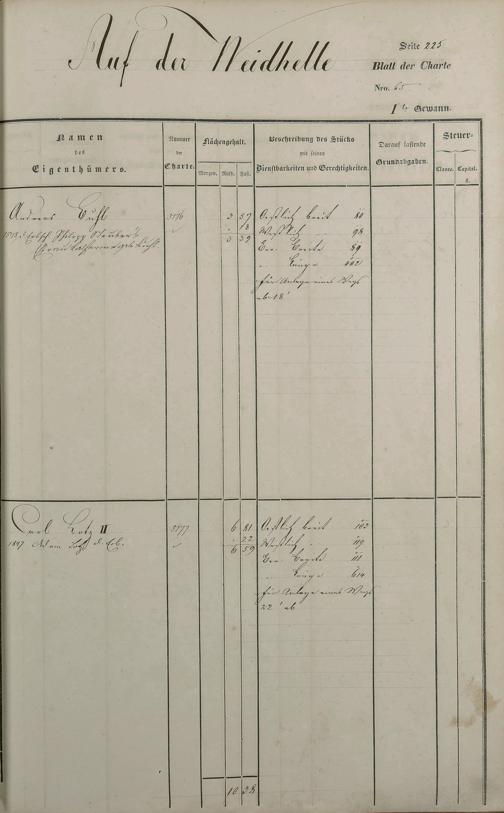 Auf der Weidhelle
Seite 225
Blatt der Charte
Nro. 65
I te Gewann.
Namen
des
Eigenthümers.
Nummer
der
Charte.
Flächengehalt.
Morgen. Rth. Fuß.
Beschreibung des Stücks
mit seinen
Dienstbarkeiten und Gerechtigkeiten.
Darauf lastende
Grundabgaben.
Steuer-
Classe. Capital.
fl.
Andreas
3176
3 57
18
3 39
Oestlich breit 80
Westlich 98
89
Länge
für Anlage eines Wegs
ab 18'
Carl Lotz II
1847 Adam Lotz d. Erb.
3177
6 81
22
6 59
Oestlich breit
Westlich
Länge
für Anlage eines Wegs
22' ab
10 38